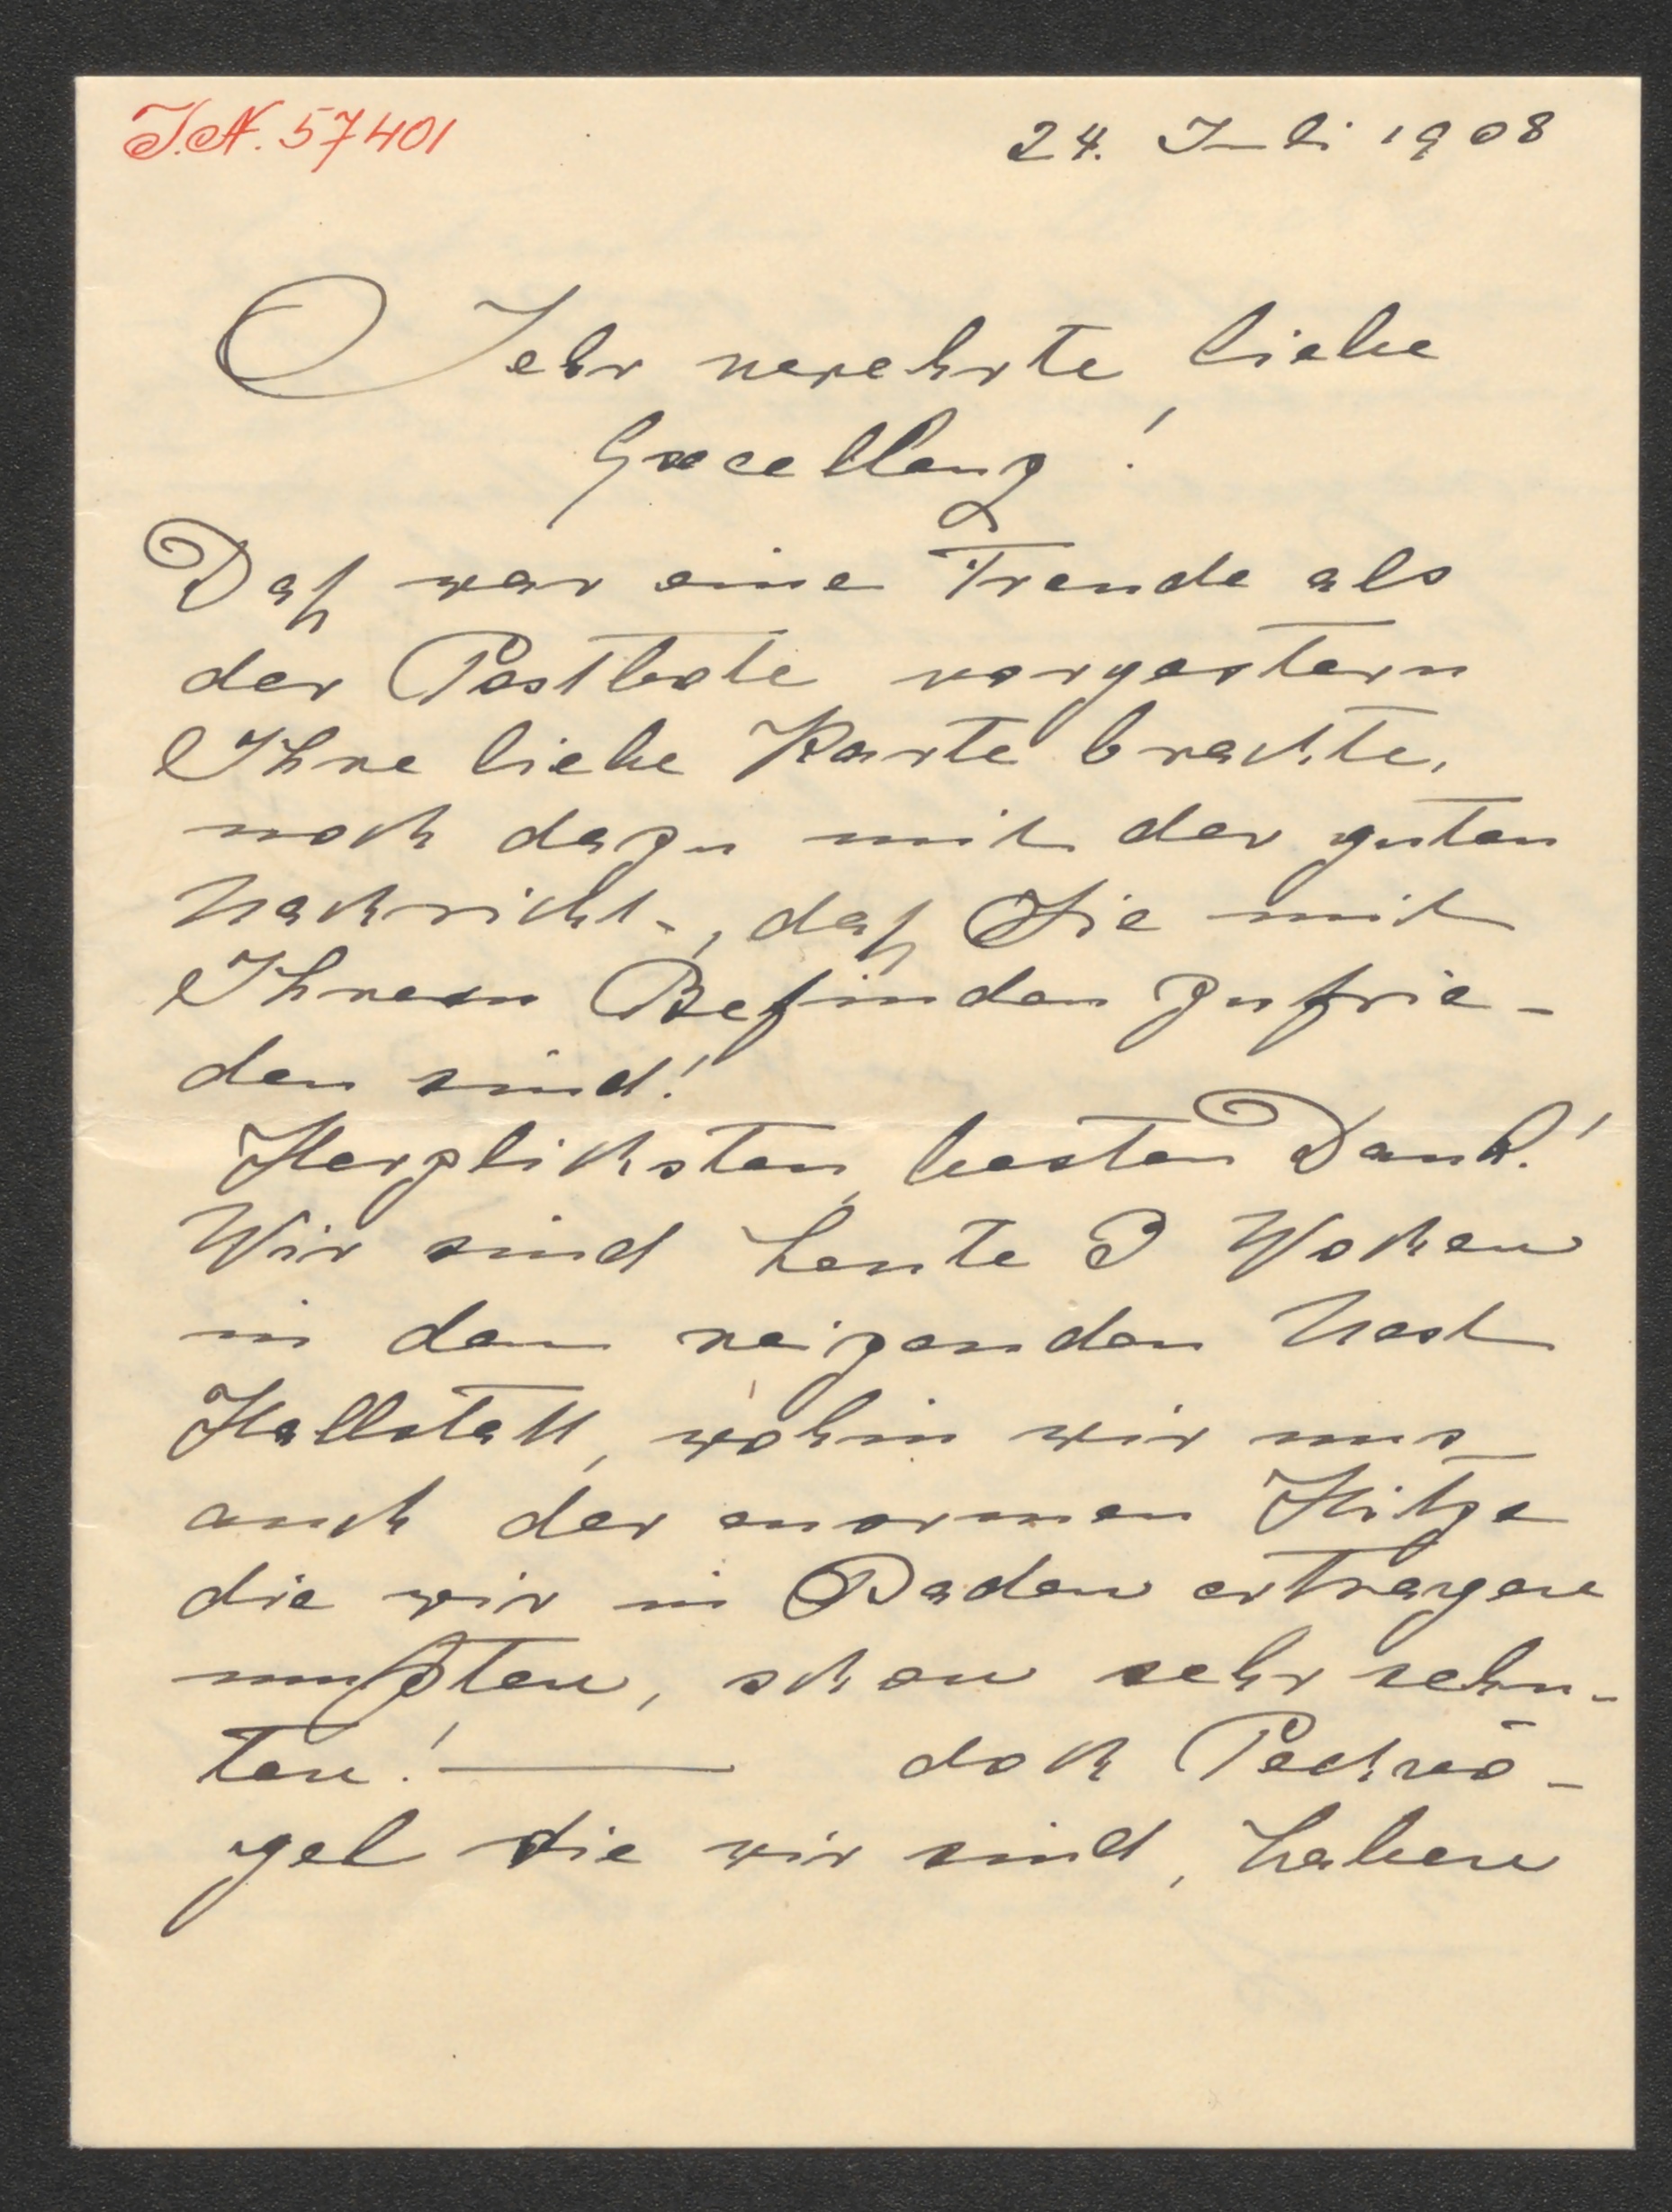 I.N. 57401
24. Juli 1908
Sehr verehrte, liebe
Excellenz!
Daß war eine Freude als
der Postbote vorgestern
Ihre liebe Karte brachte,
noch dazu mit der guten
Nachricht, daß Sie mit
Ihrem Befinden zufrie-
den sind!
Herzlichsten, besten Dank!
Wir sind heute 3 Wochen
in dem reizenden Nest
Hallstatt, wohin wir uns
auch der enormen Hitze
die wir in Baden ertragen
mußten, schon sehr sehn-
ten! — doch Pechvö-
gel die wir sind, haben